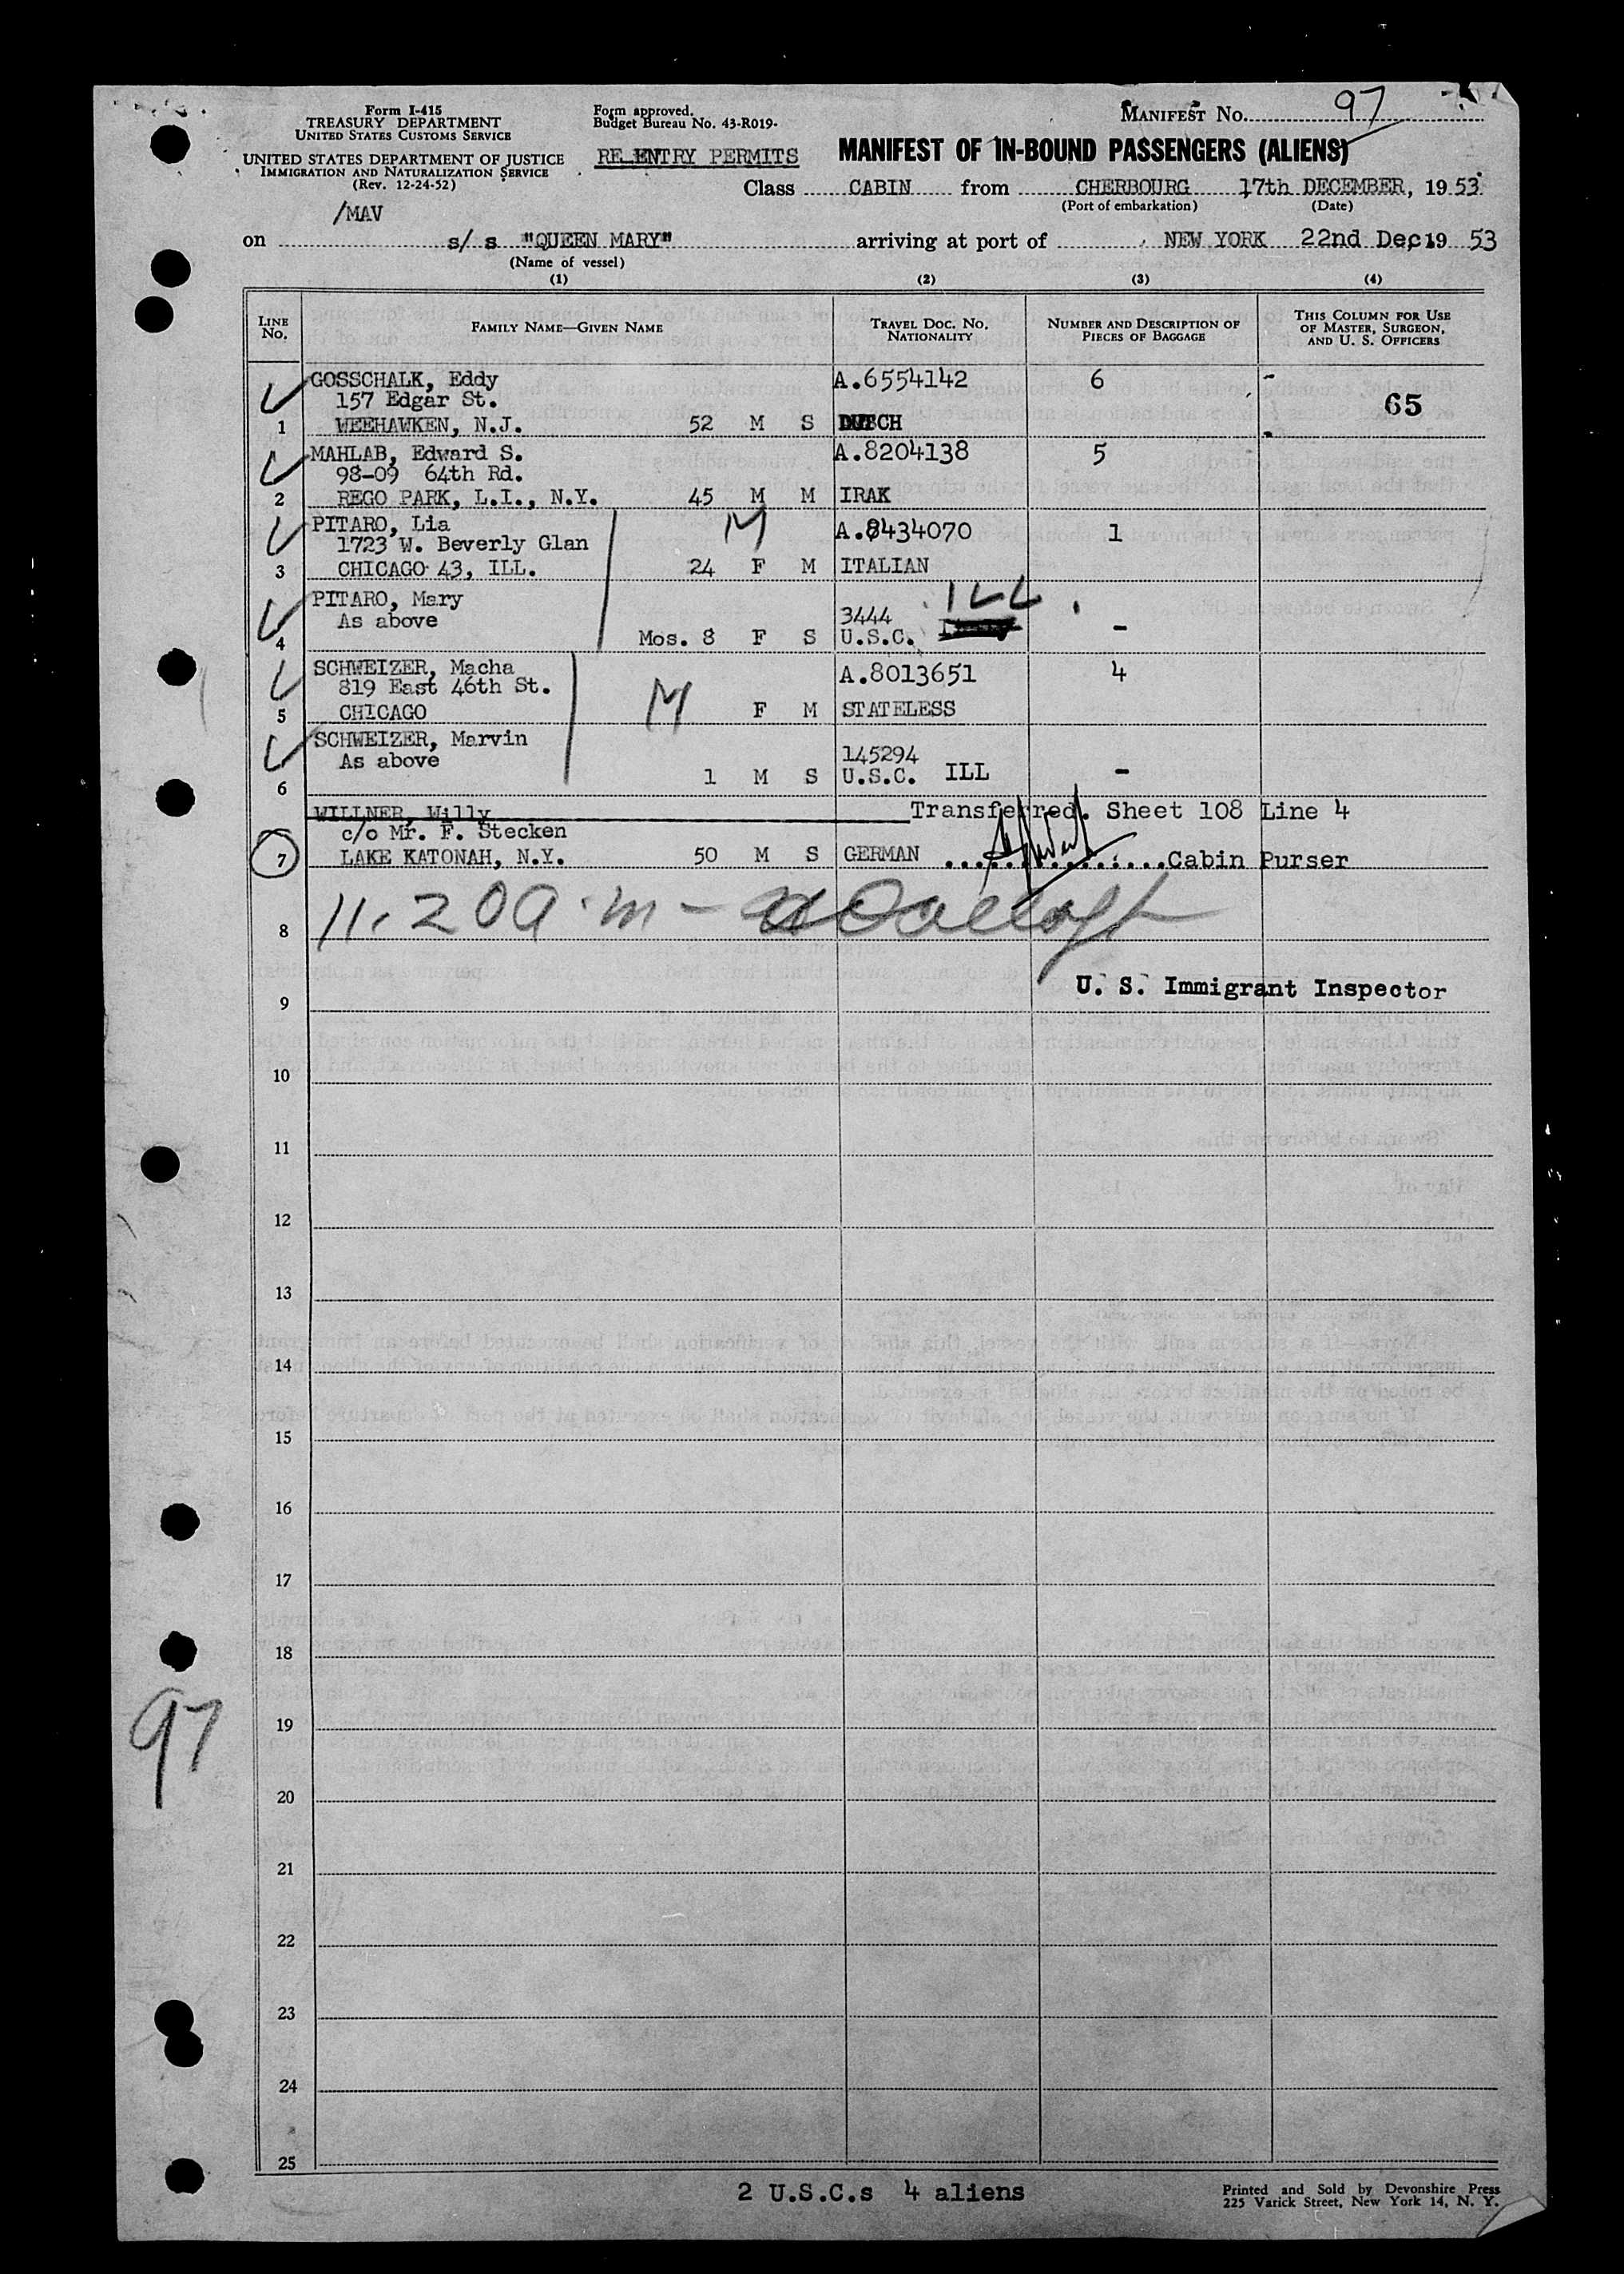 Form I-415
TREASURY DEPARTMENT
UNITED STATES CUSTOMS SERVICE
UNITED STATES DEPARTMENT OF JUSTICE
IMMIGRATION AND NATURALIZATION SERVICE
(Rev. 12-24-52)
/MAV
Form approved.
Budget Bureau No. 43-R019-
RE ENTRY PERMITS
MANIFEST NO. 97
MANIFEST OF IN-BOUND PASSENGERS (ALIENS)
Class CABIN from CHERBOURG 17th DECEMBER, 19 53
(Port of embarkation) (Date)
on s/ s "QUEEN MARY" arriving at port of NEW YORK 22nd Dec, 19 53
(Name of vessel)
(1) (2) (3) (4)
LINE NO. FAMILY NAME—GIVEN NAME TRAVEL DOC. NO. NATIONALITY NUMBER AND DESCRIPTION OF PIECES OF BAGGAGE THIS COLUMN FOR USE OF MASTER, SURGEON, AND U. S. OFFICERS
GOSSCHALK, Eddy A.6554142 6 -
157 Edgar St. 65
1 WEEHAWKEN, N.J. 52 M S DUTCH
MAHLAB, Edward S. A.8204138 5
98-09 64th Rd.
2 REGO PARK, L.I., N.Y. 45 M M IRAK
PITARO, Lia M A.8434070 1
1723 W. Beverly Glan
3 CHICAGO 43, ILL. 24 F M ITALIAN
PITARO, Mary ILL
As above 3444
4 Mos. 8 F S U.S.C. -
SCHWEIZER, Macha A.8013651 4
819 East 46th St. M
5 CHICAGO F M STATELESS
SCHWEIZER, Marvin
As above 145294
6 1 M S U.S.C. ILL -
WILLNER, Willy Transferred. Sheet 108 Line 4
c/o Mr. F. Stecken
7 LAKE KATONAH, N.Y. 50 M S GERMAN Cabin Purser
8 11.20 a.m -
U. S. Immigrant Inspector
9
10
11
12
13
14
15
16
17
18
97
19
20
21
22
23
24
25
2 U.S.C.s 4 aliens
Printed and Sold by Devonshire Press
225 Varick Street, New York 14, N. Y.